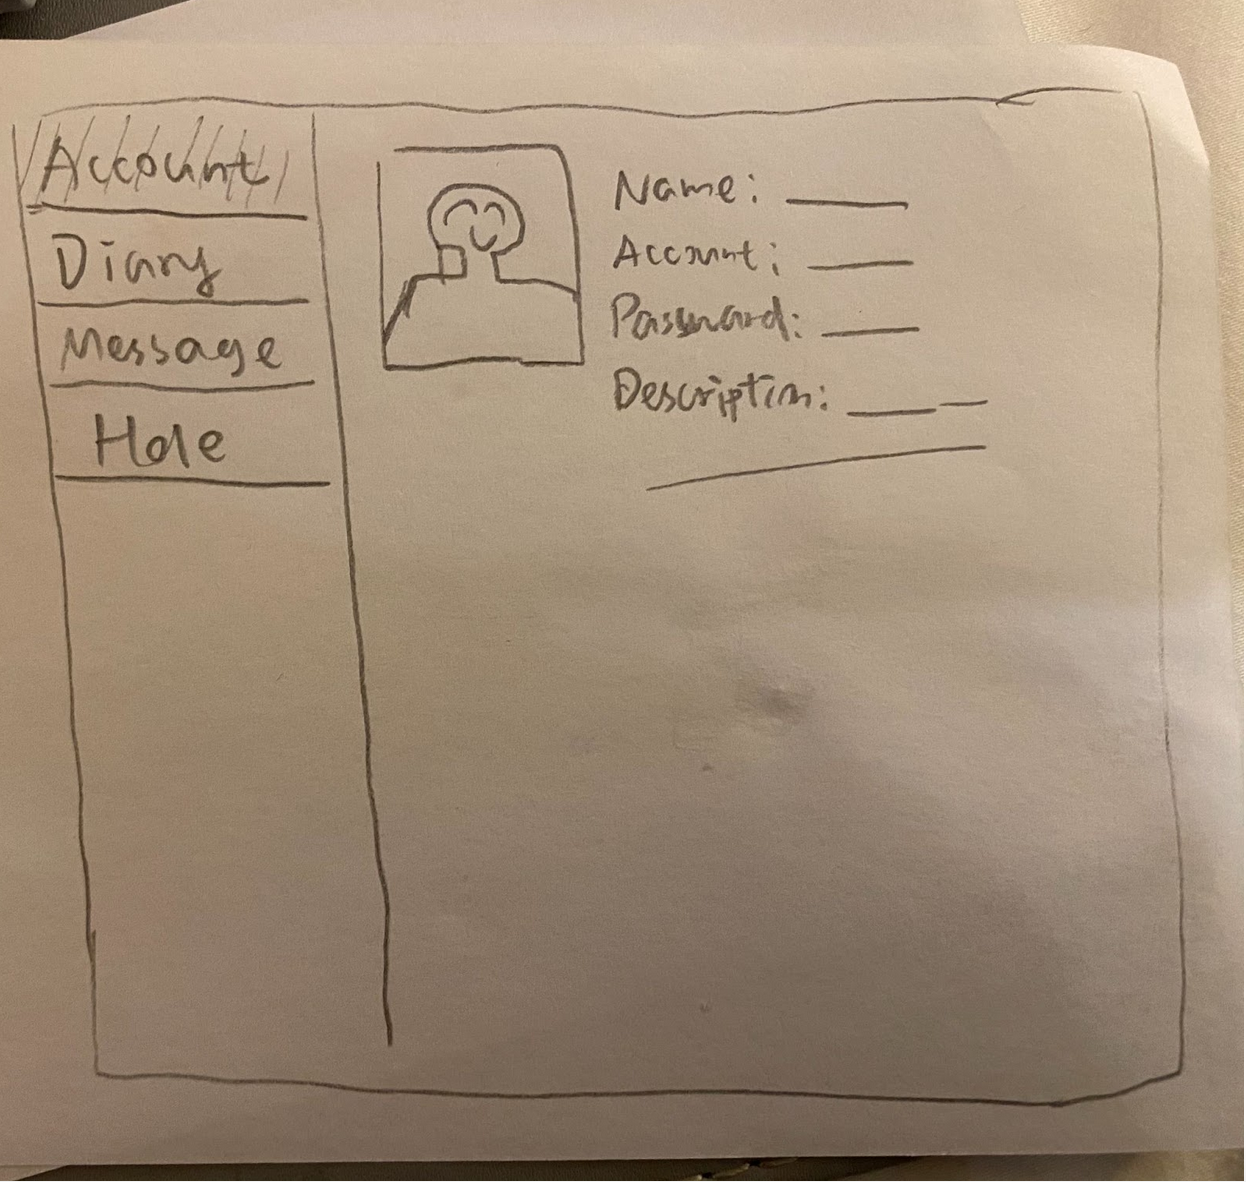 Account
Diary
Message
Hole
Name:
Account:
Password:
Description: